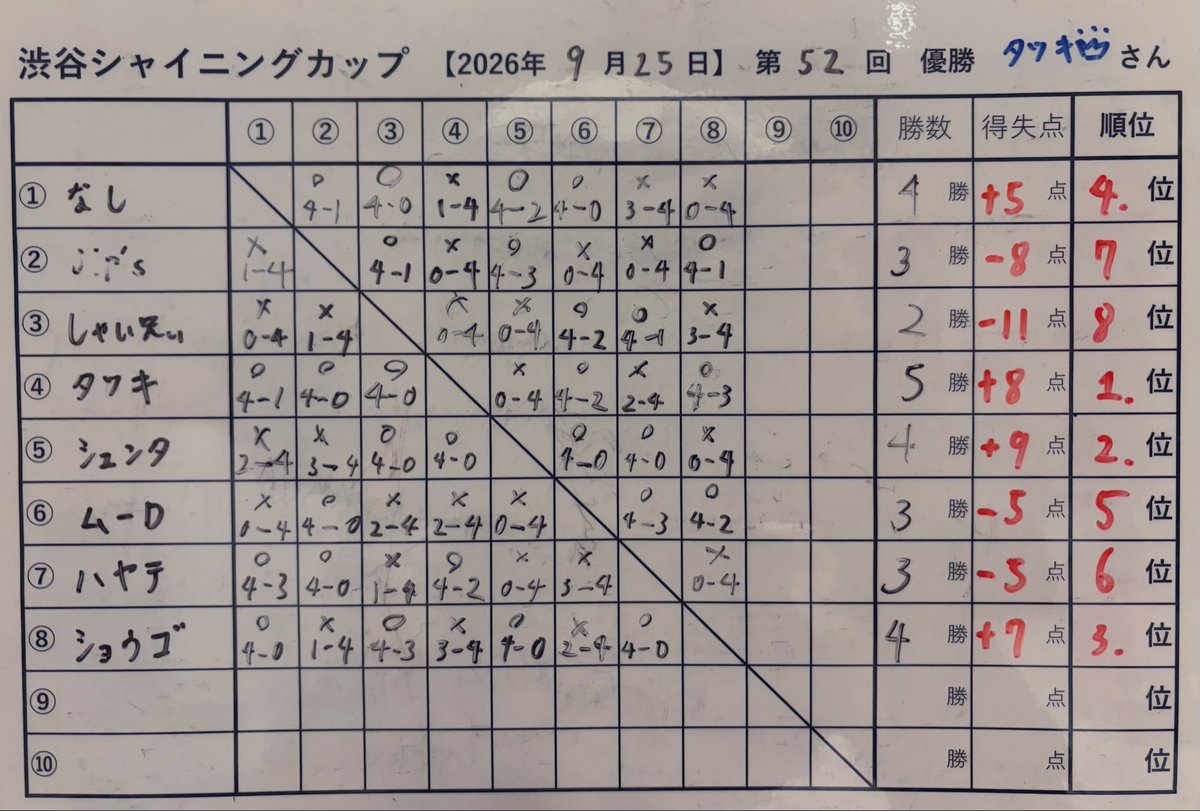 渋谷シャイニングカップ 【2026年 9月25日】 第52回 優勝 タツキ さん
① ② ③ ④ ⑤ ⑥ ⑦ ⑧ ⑨ ⑩ 勝数 得失点 順位
① なし ○ 4-1 ○ 4-0 × 1-4 ○ 4-2 ○ 4-0 × 3-4 × 0-4 4勝 +5点 4.位
② × 1-4 ○ 4-1 × 0-4 ○ 4-3 × 0-4 × 0-4 ○ 4-1 3勝 -8点 7位
③ × 0-4 × 1-4 × 0-4 × 0-4 ○ 4-2 ○ 4-1 × 3-4 2勝 -11点 8位
④ タツキ ○ 4-1 ○ 4-0 ○ 4-0 × 0-4 ○ 4-2 × 2-4 ○ 4-3 5勝 +8点 1.位
⑤ シュンタ × 2-4 × 3-4 ○ 4-0 ○ 4-0 ○ 4-0 ○ 4-0 × 0-4 4勝 +9点 2.位
⑥ ムーロ × 0-4 ○ 4-0 × 2-4 × 2-4 × 0-4 ○ 4-3 ○ 4-2 3勝 -5点 5位
⑦ ハヤテ ○ 4-3 ○ 4-0 × 1-4 ○ 4-2 × 0-4 × 3-4 × 0-4 3勝 -5点 6位
⑧ ショウゴ ○ 4-0 × 1-4 ○ 4-3 × 3-4 ○ 4-0 × 2-4 ○ 4-0 4勝 +7点 3.位
⑨ 勝 点 位
⑩ 勝 点 位